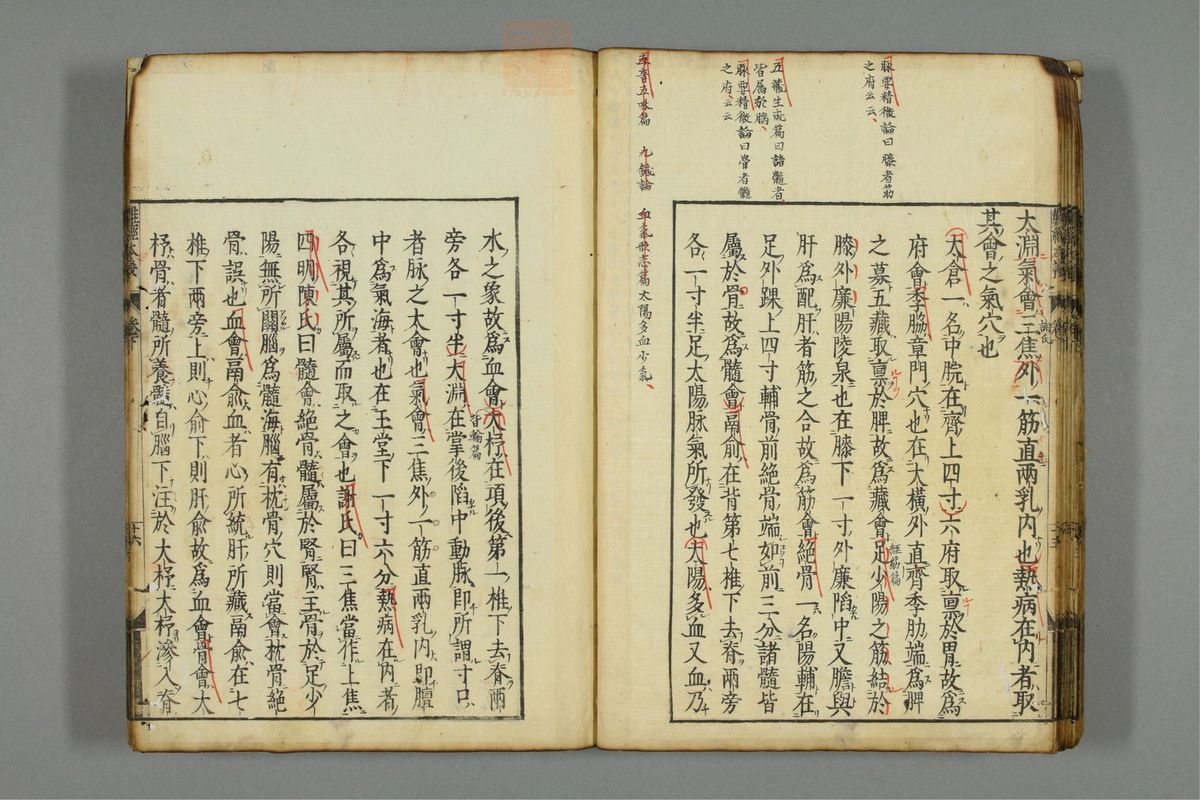 脉要精微論曰膝者筋
之府云云
五藏生成篇曰諸髓者
皆属於腦
脉要精微論曰骨者髓
之府云云
五音五味篇 九鍼論 血氣形志篇太陽多血少氣
太淵氣會三焦外一筋直兩乳内也熱病在内者取
其會之氣穴也
太倉一名中脘在齊上四寸六府取禀於胃故為
府會季脇章門穴也在大横外直齊季肋端為脾
之募五藏取禀於脾故為藏會足少陽之筋結於
膝外廉陽陵泉也在膝下一寸外廉陷中又膽與
肝為配肝者筋之合故為筋會絕骨一名陽輔在
足外踝上四寸輔骨前絕骨端如前三分諸髓皆
屬於骨故為髓會鬲俞在背第七椎下去脊兩旁
各一寸半足太陽脉氣所發也太陽多血又血乃
水之象故為血會大杼在項後第一椎下去脊兩
旁各一寸半太淵在掌後陷中動脉即所謂寸口
者脉之大會也氣會三焦外一筋直兩乳内即膻
中為氣海者也在玉堂下一寸六分熱病在内者
各視其所屬而取之會也謝氏曰三焦當作上焦
四明陳氏曰髓會絕骨髓屬於腎腎主骨於足少
陽無所關腦為髓海腦有枕骨穴則當會枕骨絕
骨誤也血會鬲俞血者心所統肝所藏鬲俞在七
椎下兩旁上則心俞下則肝俞故為血會骨會大
杼骨者髓所養髓自腦下注於大杼大杼滲入脊